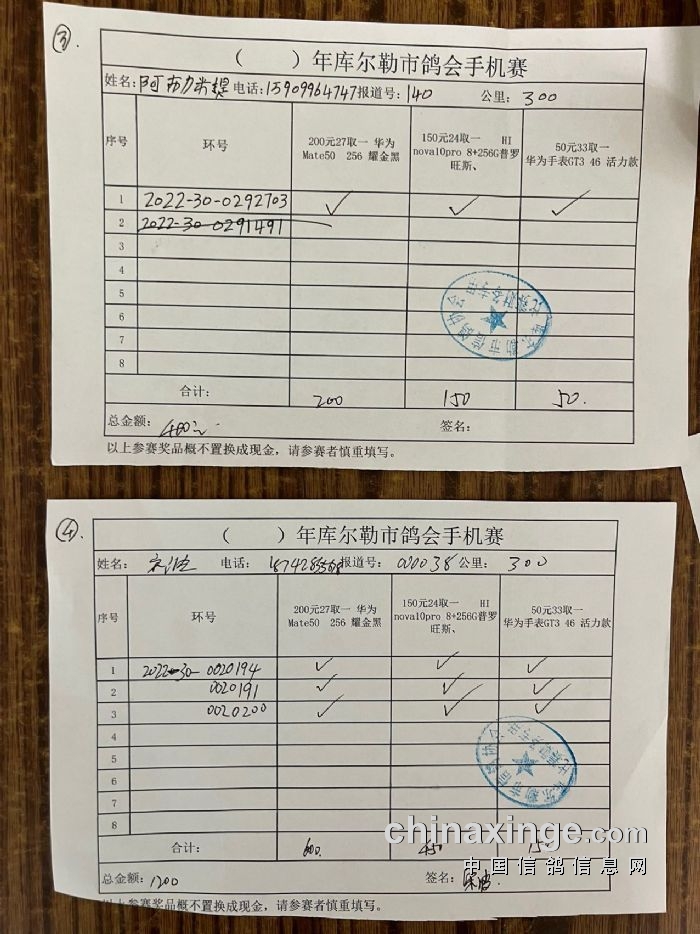 ③.
（ ）年库尔勒市鸽会手机赛
姓名: 阿布力米提 电话: 15909964747 报道号: 140 公里: 300
序号 环号 200元27取一 华为Mate50 256 耀金黑 150元24取一 HI nova10pro 8+256G普罗旺斯、 50元33取一 华为手表GT3 46 活力款
1 2022-30-0292703 ✓ ✓ ✓
2 2022-30-0291491
3
4
5
6
7
8
库尔勒市信鸽协会
比赛财务专用
合计: 200 150 50.
总金额: 400元 签名:
以上参赛奖品概不置换成现金，请参赛者慎重填写。
④.
（ ）年库尔勒市鸽会手机赛
姓名: 电话: 报道号: 000038 公里: 300
序号 环号 200元27取一 华为Mate50 256 耀金黑 150元24取一 HI nova10pro 8+256G普罗旺斯、 50元33取一 华为手表GT3 46 活力款
1 2022-30-0020194 ✓ ✓ ✓
2 0020191 ✓ ✓ ✓
3 0020200 ✓ ✓ ✓
4
5
6
7
8
库尔勒市信鸽协会
比赛财务专用
合计: 600. 450 150
总金额: 1200 签名:
以上参赛奖品概不置换成现金，请参赛者慎重填写。
chinaxinge.com
中国信鸽信息网